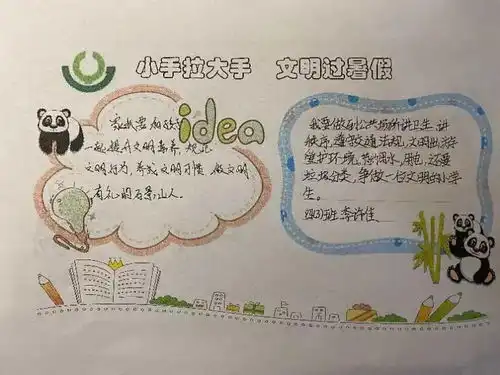 小手拉大手 文明过暑假
idea
我要和孩
一起提升文明素养，规范
文明行为，养成文明习惯，做文明
有礼的石景山人。
我要做到公共场所讲卫生，讲
秩序，遵守交通法规，文明出游
爱护环境，
垃圾分类，争做一位文明的小学
生。
班 李许佳